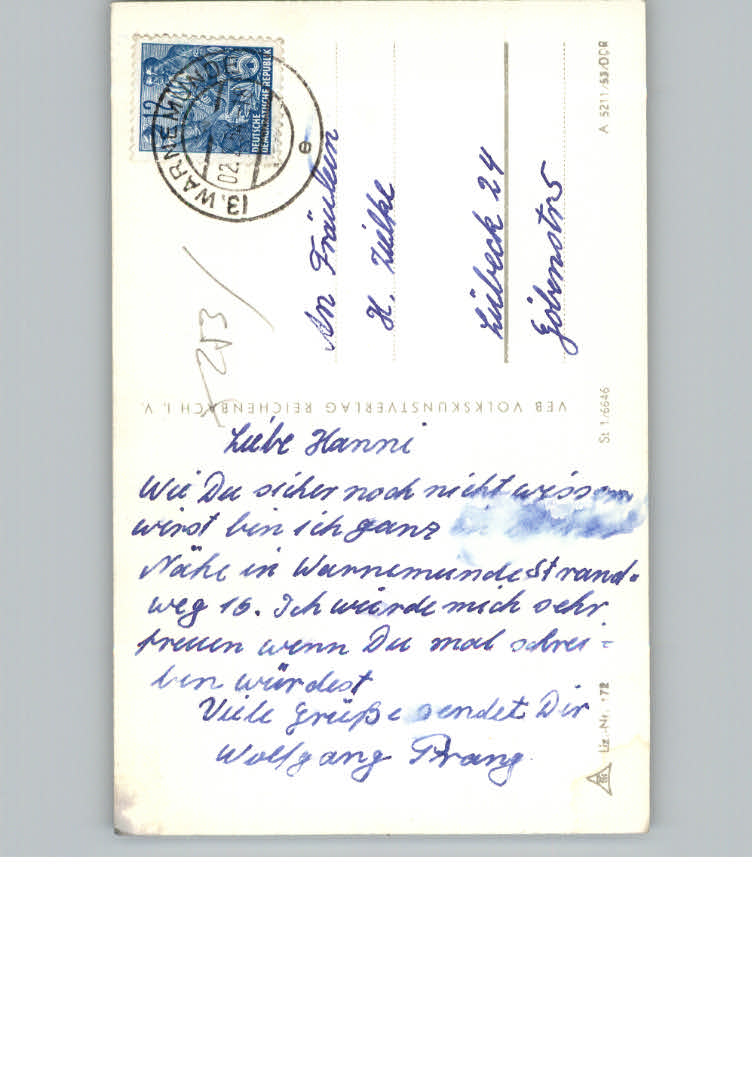 12
DEUTSCHE
DEMOKRATISCHE REPUBLIK
13. WARNEMÜNDE
02.
e
253
An Fräulein
H. Zülke
Lübeck 24
Göbenstr 5
A 5211/53/DDR
VEB VOLKSKUNSTVERLAG REICHENBACH I. V.
St 1/6646
Liebe Hanni
Wie Du sicher noch nicht wissen
wirst bin ich ganz
Nähe in Warnemünde Strand-
weg 16. Ich würde mich sehr
freuen wenn Du mal schrei-
ben würdest
Viele Grüße sendet Dir
Wolfgang Prang
Liz.-Nr. 172